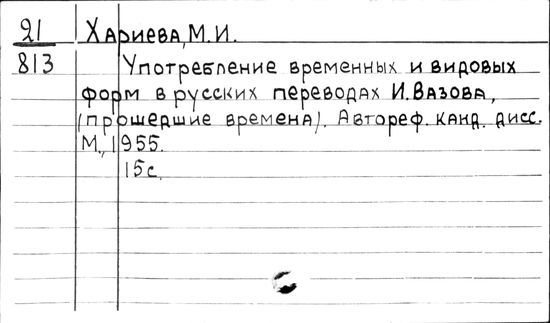 21 Хариева, М.И.
813 Употребление временных и видовых
форм в русских переводах И.Вазова,
(прошедшие времена). Автореф. канд. дисс.
М., 1955.
15с.